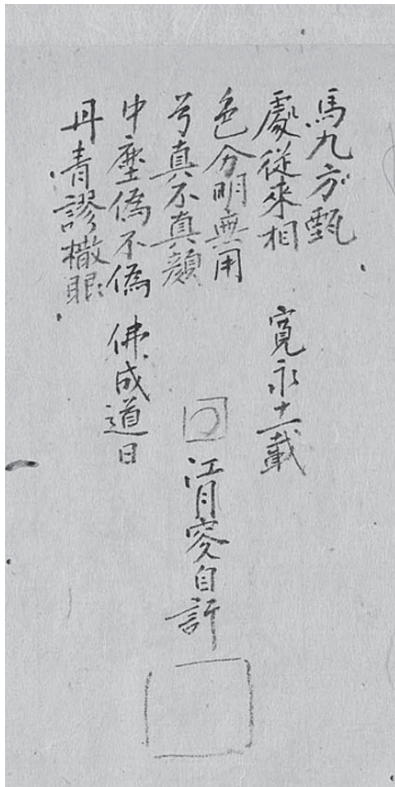 丹青謬撒眼
中塵偽不偽
号真不真顔
色分明無用
處從來相
馬九方甄
寛永十一載
佛成道日
江月叟自